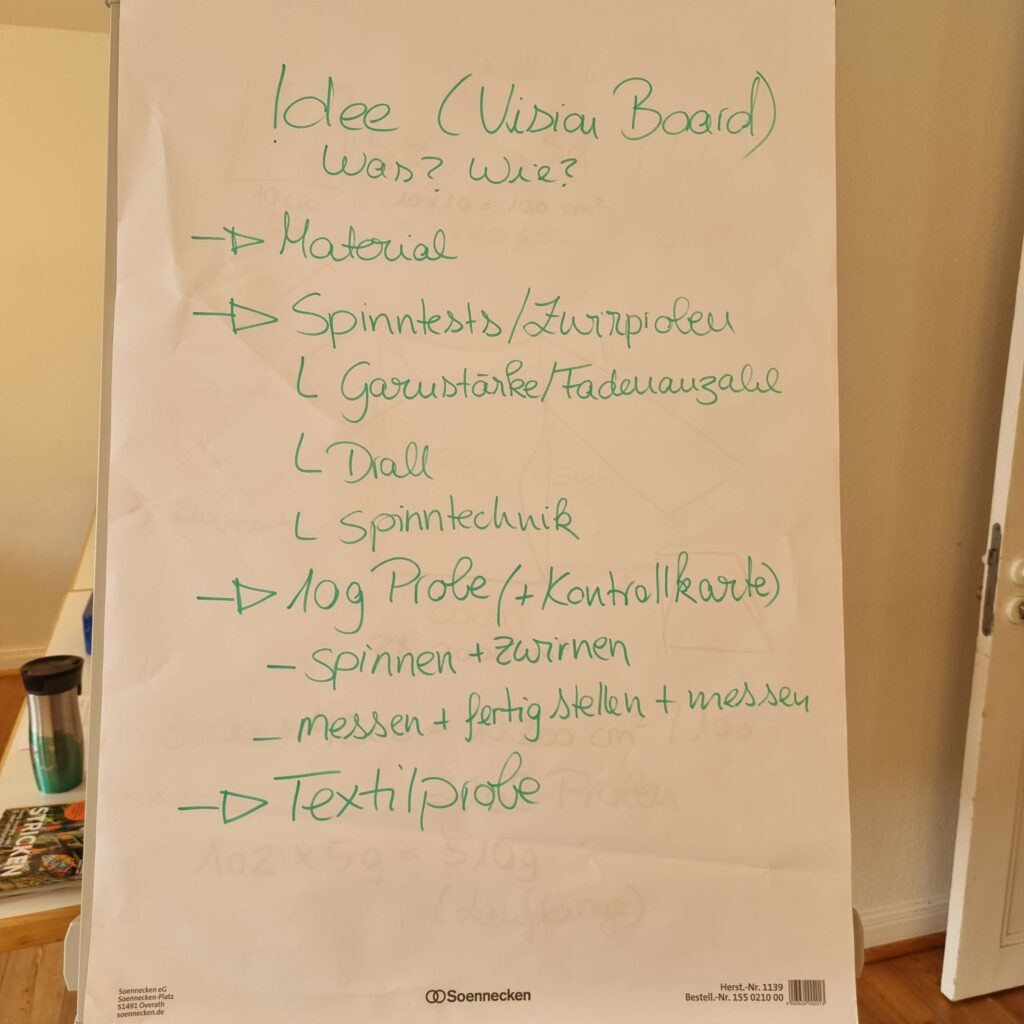 Idee (Vision Board)
Was? Wie?
→ Material
→ Spinntests/Zwirnproben
└ Garnstärke/Fadenanzahl
└ Drall
└ Spinntechnik
→ 10g Probe (+ Kontrollkarte)
- spinnen + zwirnen
- messen + fertig stellen + messen
→ Textilprobe
10cm
10 x 10 = 100 cm²
50cm
Proben
102 x 5g = 510g
(Lauflänge)
STRICKEN
Soennecken eG
Soennecken-Platz
51491 Overath
soennecken.de
Soennecken
Herst.-Nr. 1139
Bestell.-Nr. 155 0210 00